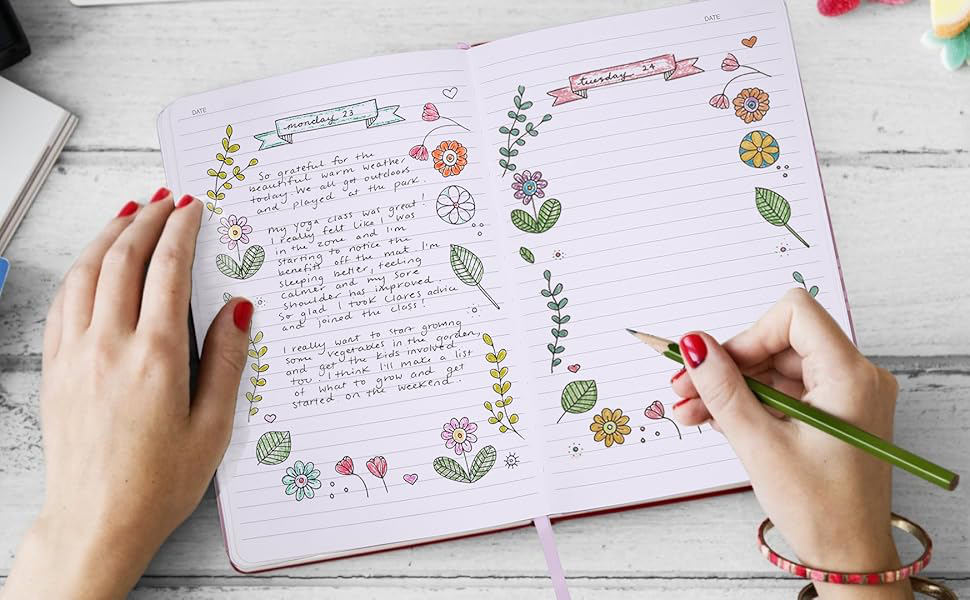 DATE
monday 23
So grateful for the
beautiful warm weather
today. We all got outdoors
and played at the park.
My yoga class was great!
I really felt like I was
in the zone and I'm
starting to notice the
benefits off the mat. I'm
sleeping better, feeling
calmer and my sore
shoulder has improved!
So glad I took Clares advice
and joined the class!
I really want to start growing
some vegetables in the garden,
and get the kids involved
too. I think I'll make a list
of what to grow and get
started on the weekend.
DATE
tuesday 24